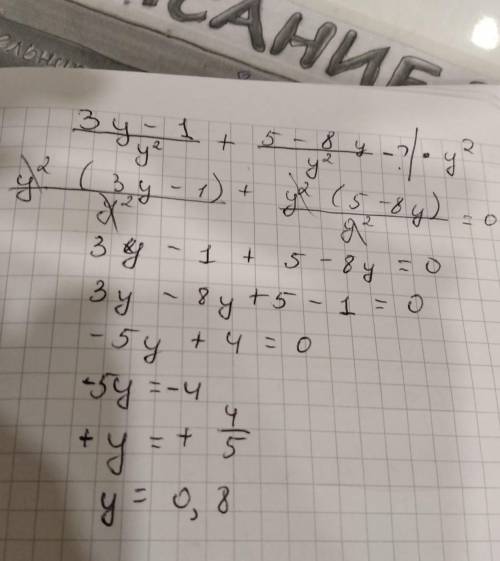 ИСАНИЕ
ельны
3y - 1 / y² + 5 - 8y / y² - ? | · y²
y² (3y - 1) / y² + y² (5 - 8y) / y² = 0
3y - 1 + 5 - 8y = 0
3y - 8y + 5 - 1 = 0
-5y + 4 = 0
-5y = -4
+ y = + 4/5
y = 0,8